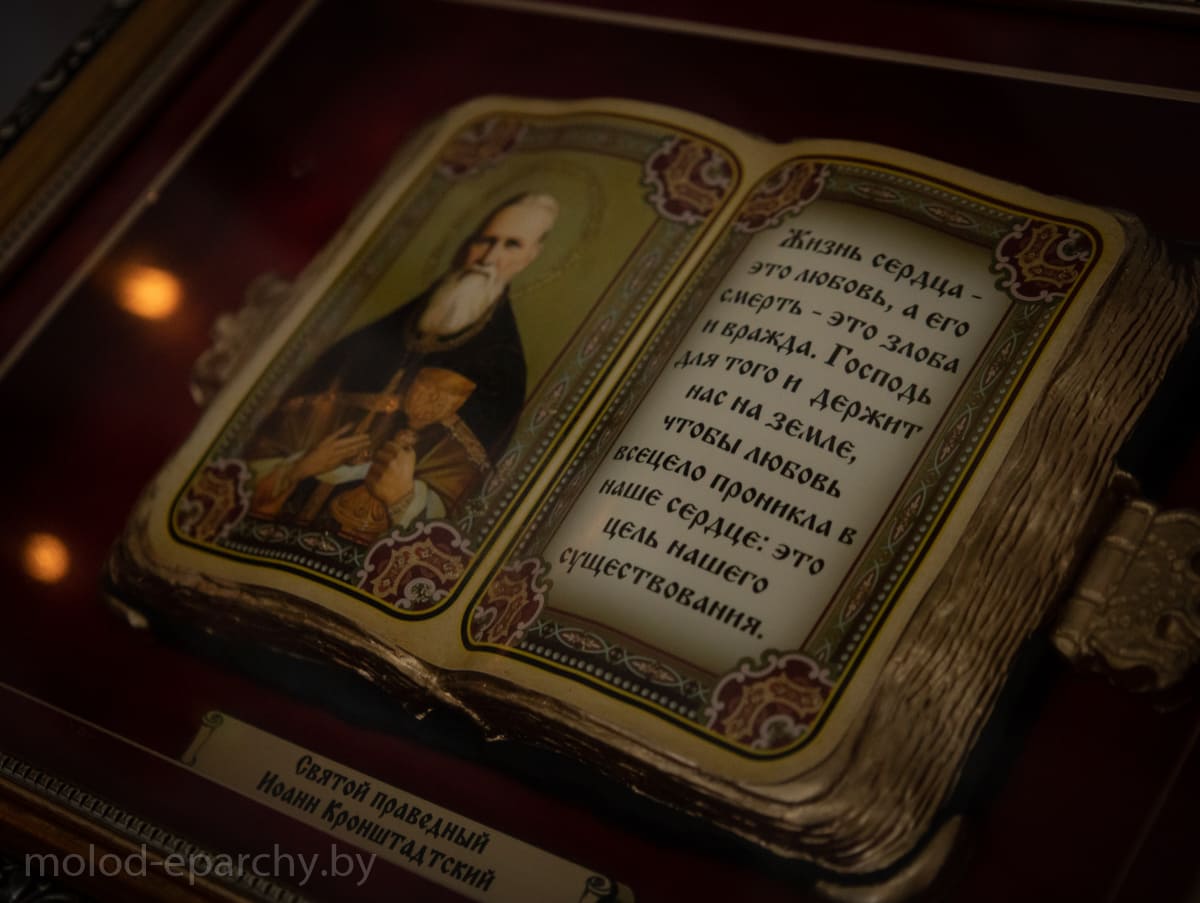 Жизнь сердца -
это любовь, а его
смерть - это злоба
и вражда. Господь
для того и держит
нас на земле,
чтобы любовь
всецело проникла в
наше сердце: это
цель нашего
существования.
Святой праведный
Иоанн Кронштадтский
molod-eparchy.by